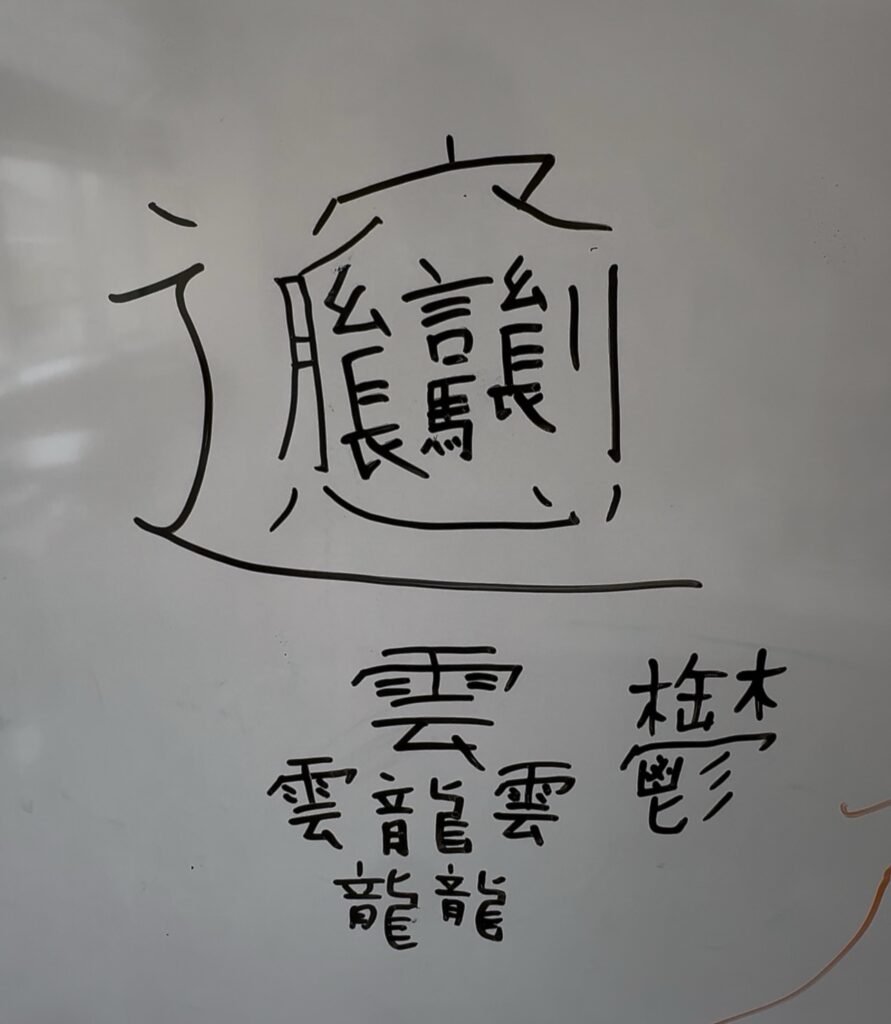 𰻞
𱁬 鬱